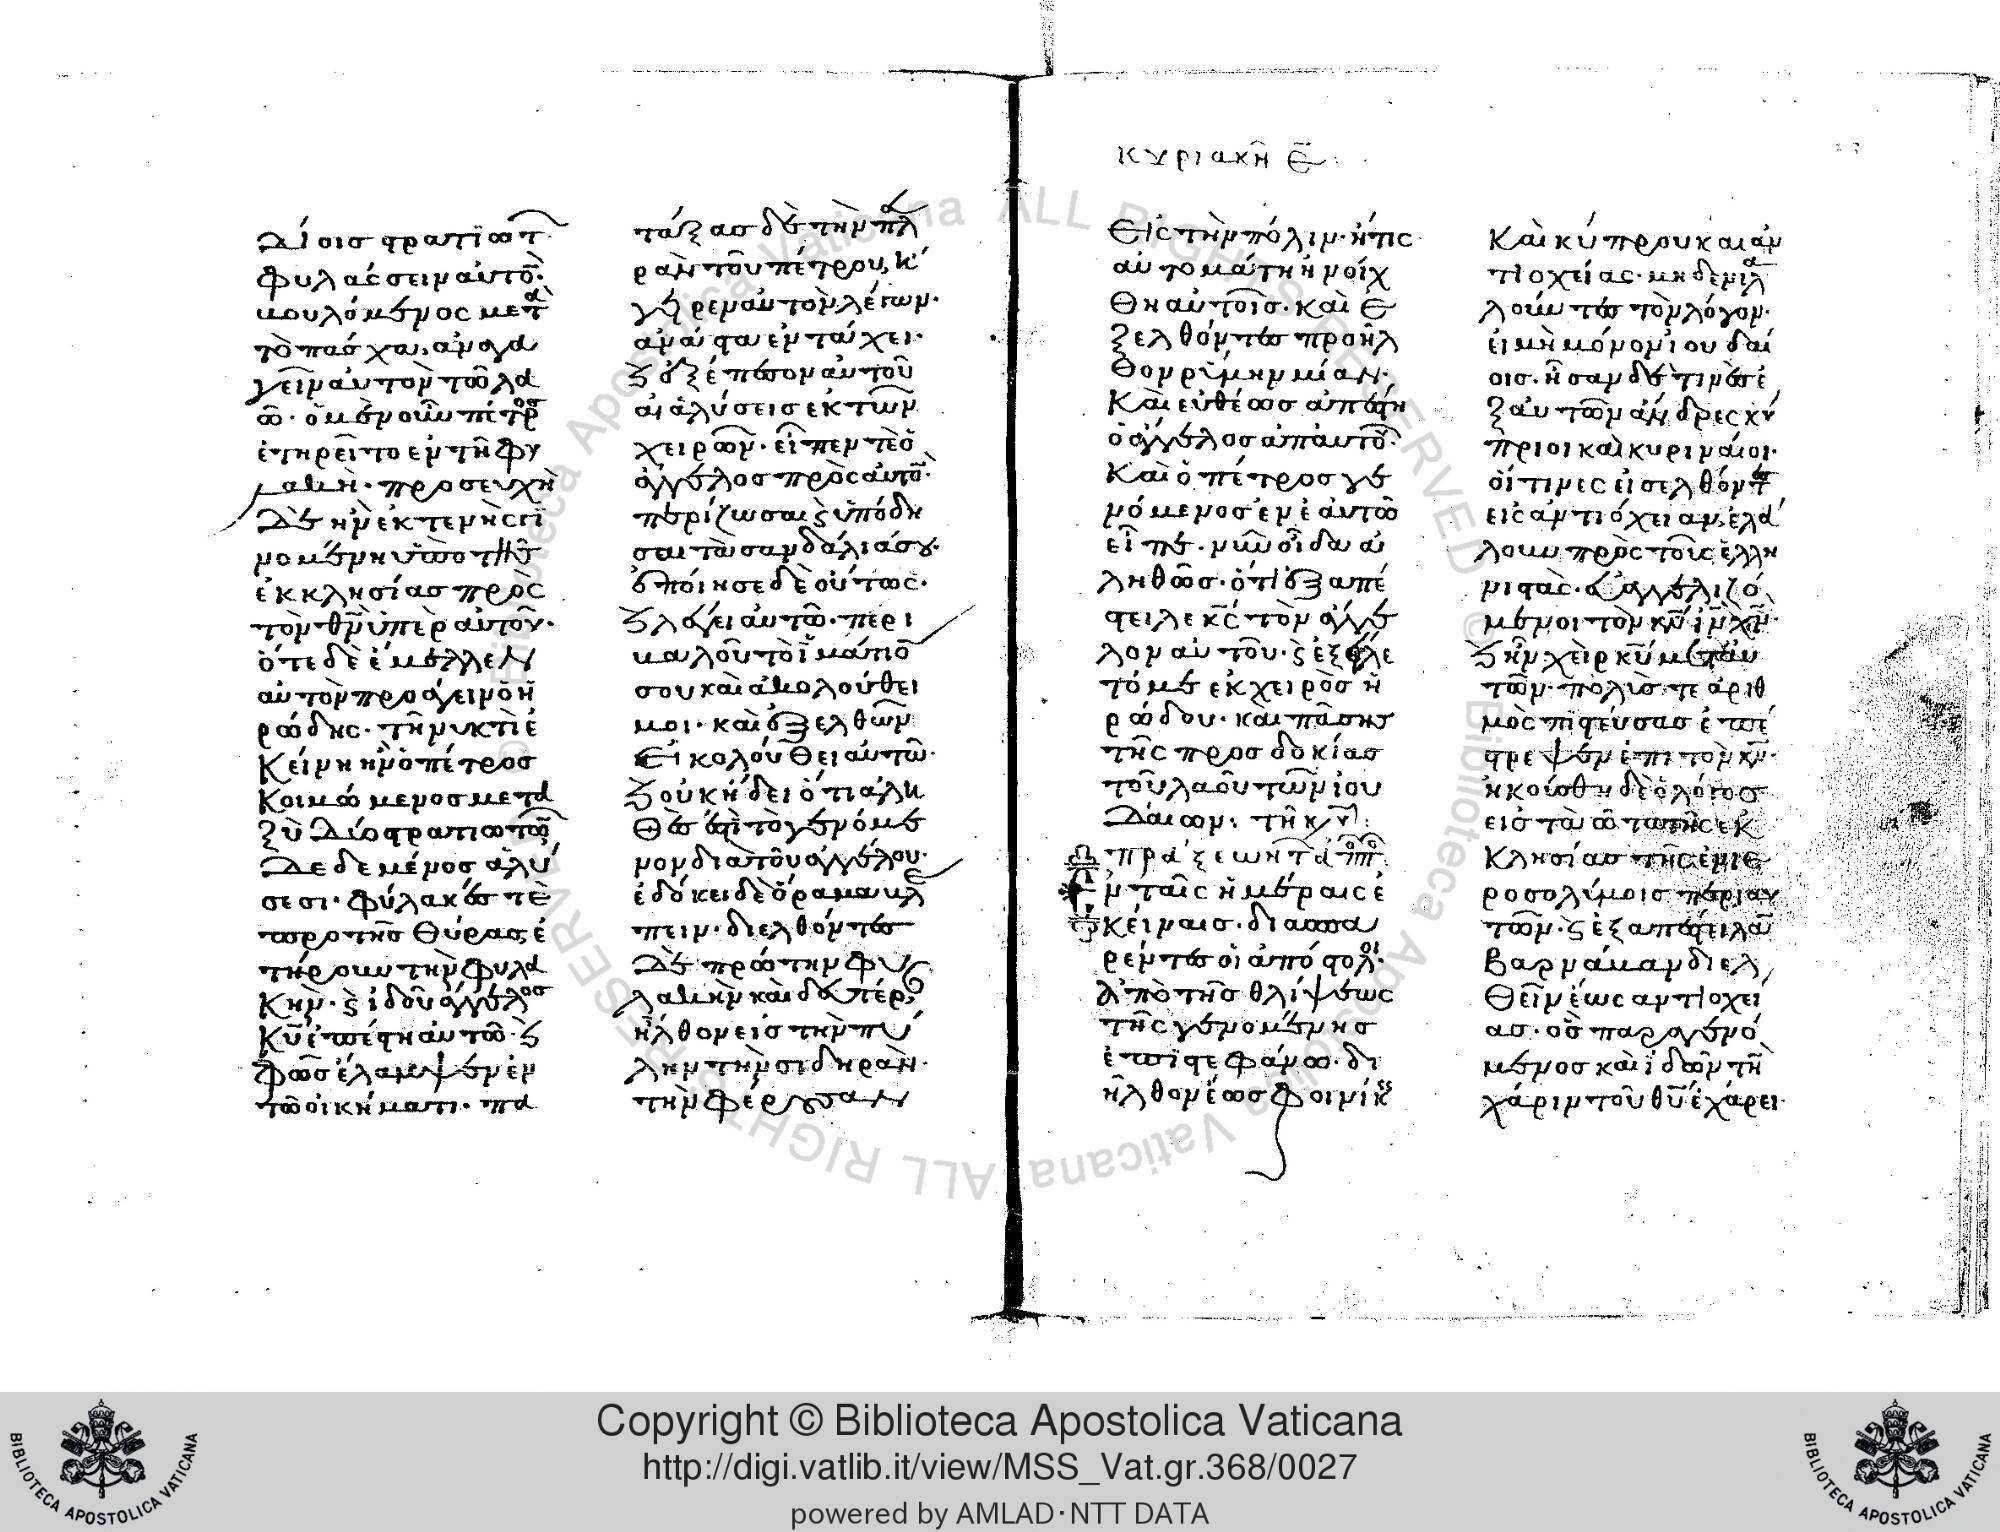 δίοις στρατιωτ
φυλάσσειν αὐτό·
βουλόμενος μετα
τὸ πάσχα, ἀναγα
γεῖν αὐτὸν τῶ λα
ῶ· ὁ μὲν οὖν πέτρος
ἐτηρεῖτο ἐν τῆ φυ
λακῆ· προσευχὴ
δὲ ἦν ἐκτενὴς γι
νομένη ὑπὸ τῆς
ἐκκλησίας πρὸς
τὸν θν ὑπὲρ αὐτοῦ·
ὅτε δὲ ἔμελλεν
αὐτὸν προάγειν ὁ ἡ
ρώδης· τῆ νυκτὶ ἐ
κείνη ἦν ὁ πέτρος
κοιμώμενος μετα
ξὺ δύο στρατιωτῶ
δεδεμένος ἁλύ
σεσι· φύλακές τὲ
πρὸ τῆς θύρας, ἐ
τήρουν τὴν φυλα
κήν· ϛ ἰδοῦ ἄγγελος
κυ ἐπέστη αὐτῶ· ϛ
φῶς ἔλαμψεν ἐν
τῶ οἰκήματι· πα
τάξας δὲ τὴν πλ
ρὰν τοῦ πέτρου, ἤ
γειρεν αὐτὸν λέγων·
ἀνάστα ἐν τάχει·
ϛ ἐξέπεσον αὐτοῦ
αἱ ἁλύσεις ἐκ τῶν
χειρῶν· εἶπεν τὲ ὁ
ἄγγελος πρὸς αὐτό·
περίζωσαι ϛ ὑπόδη
σαι τὰ σανδάλιά σου·
ἐποίησε δὲ οὕτως·
ϛ λέγει αὐτῶ· περι
βαλοῦ τὸ ἱμάτιό
σου καὶ ἀκολούθει
μοι· καὶ ἐξελθῶν
ἠκολούθει αὐτῶ·
ϛ οὐκ ἤδει ὅτι ἀλη
θές ἐστι τὸ γενόμε
νον διὰ τοῦ ἀγγέλου·
ἐδόκει δὲ ὅραμα βλέ
πειν· διελθόντες
δὲ πρώτην φυ
λακὴν καὶ δευτέρ,
ἦλθον εἰς τὴν πύ
λην τὴν σιδηρὰν·
τὴν φέρουσαν
κυριακῆ ε
εἰς τὴν πόλιν· ἥτις
αὐτομάτη ἠνοίχ
θη αὐτοῖς· καὶ ἐ
ξελθόντες προῆλ
θον ῥύμην μίαν·
καὶ εὐθέως ἀπέστη
ὁ ἄγγελος ἀπ αὐτοῦ·
καὶ ὁ πέτρος γε
νόμενος ἐν ἑαυτῶ
εἶπε· νῦν οἶδα ἀ
ληθῶς· ὅτι ἐξαπέ
στειλε κς τὸν ἄγγε
λον αὐτοῦ· ϛ ἐξείλε
τό με ἐκ χειρὸς ἡ
ρώδου· καὶ πάσης
τῆς προσδοκίας
τοῦ λαοῦ τῶν ἰου
δαίων:
πράξεων τ
ἐν ταῖς ἡμέραις ἐ
κείναις· διασπα
ρέντες οἱ ἀπόστολοι·
ἀπὸ τῆς θλίψεως
τῆς γενομένης
ἐπὶ στεφάνω· δι
ῆλθον ἕως φοινίκ
καὶ κύπρου καὶ ἀν
τιοχείας· μηδενὶ λα
λοῦντες τὸν λόγον·
εἰ μὴ μόνον ἰουδαί
οις· ἦσαν δέ τινες ἐ
ξ αὐτῶν ἄνδρες κύ
πριοι καὶ κυριναίοι·
οἵτινες εἰσελθόντες
εἰς ἀντιόχειαν, ἐλά
λουν πρὸς τοὺς ἑλλη
νιστὰς· εὐαγγελιζό
μενοι τὸν κν ιν χν·
ϛ ἦν χεὶρ κυ μετ αὐ
τῶν· πολύς τε ἀριθ
μὸς πιστεύσας ἐπέ
στρεψεν ἐπι τὸν κν·
ἠκούσθη δὲ ὁ λόγος
εἰς τὰ ὦτα τῆς ἐκ
κλησίας τῆς ἐν ιε
ροσολύμοις περι αυ
τῶν· ϛ ἐξαπέστειλα
βαρνάβαν διελ
θεῖν ἕως αντιοχεί
ας· ὃς παραγενό
μενος καὶ ἰδὼν τὴ
χάριν τοῦ θυ ἐχάρει·
Copyright © Biblioteca Apostolica Vaticana
http://digi.vatlib.it/view/MSS_Vat.gr.368/0027
powered by AMLAD·NTT DATA